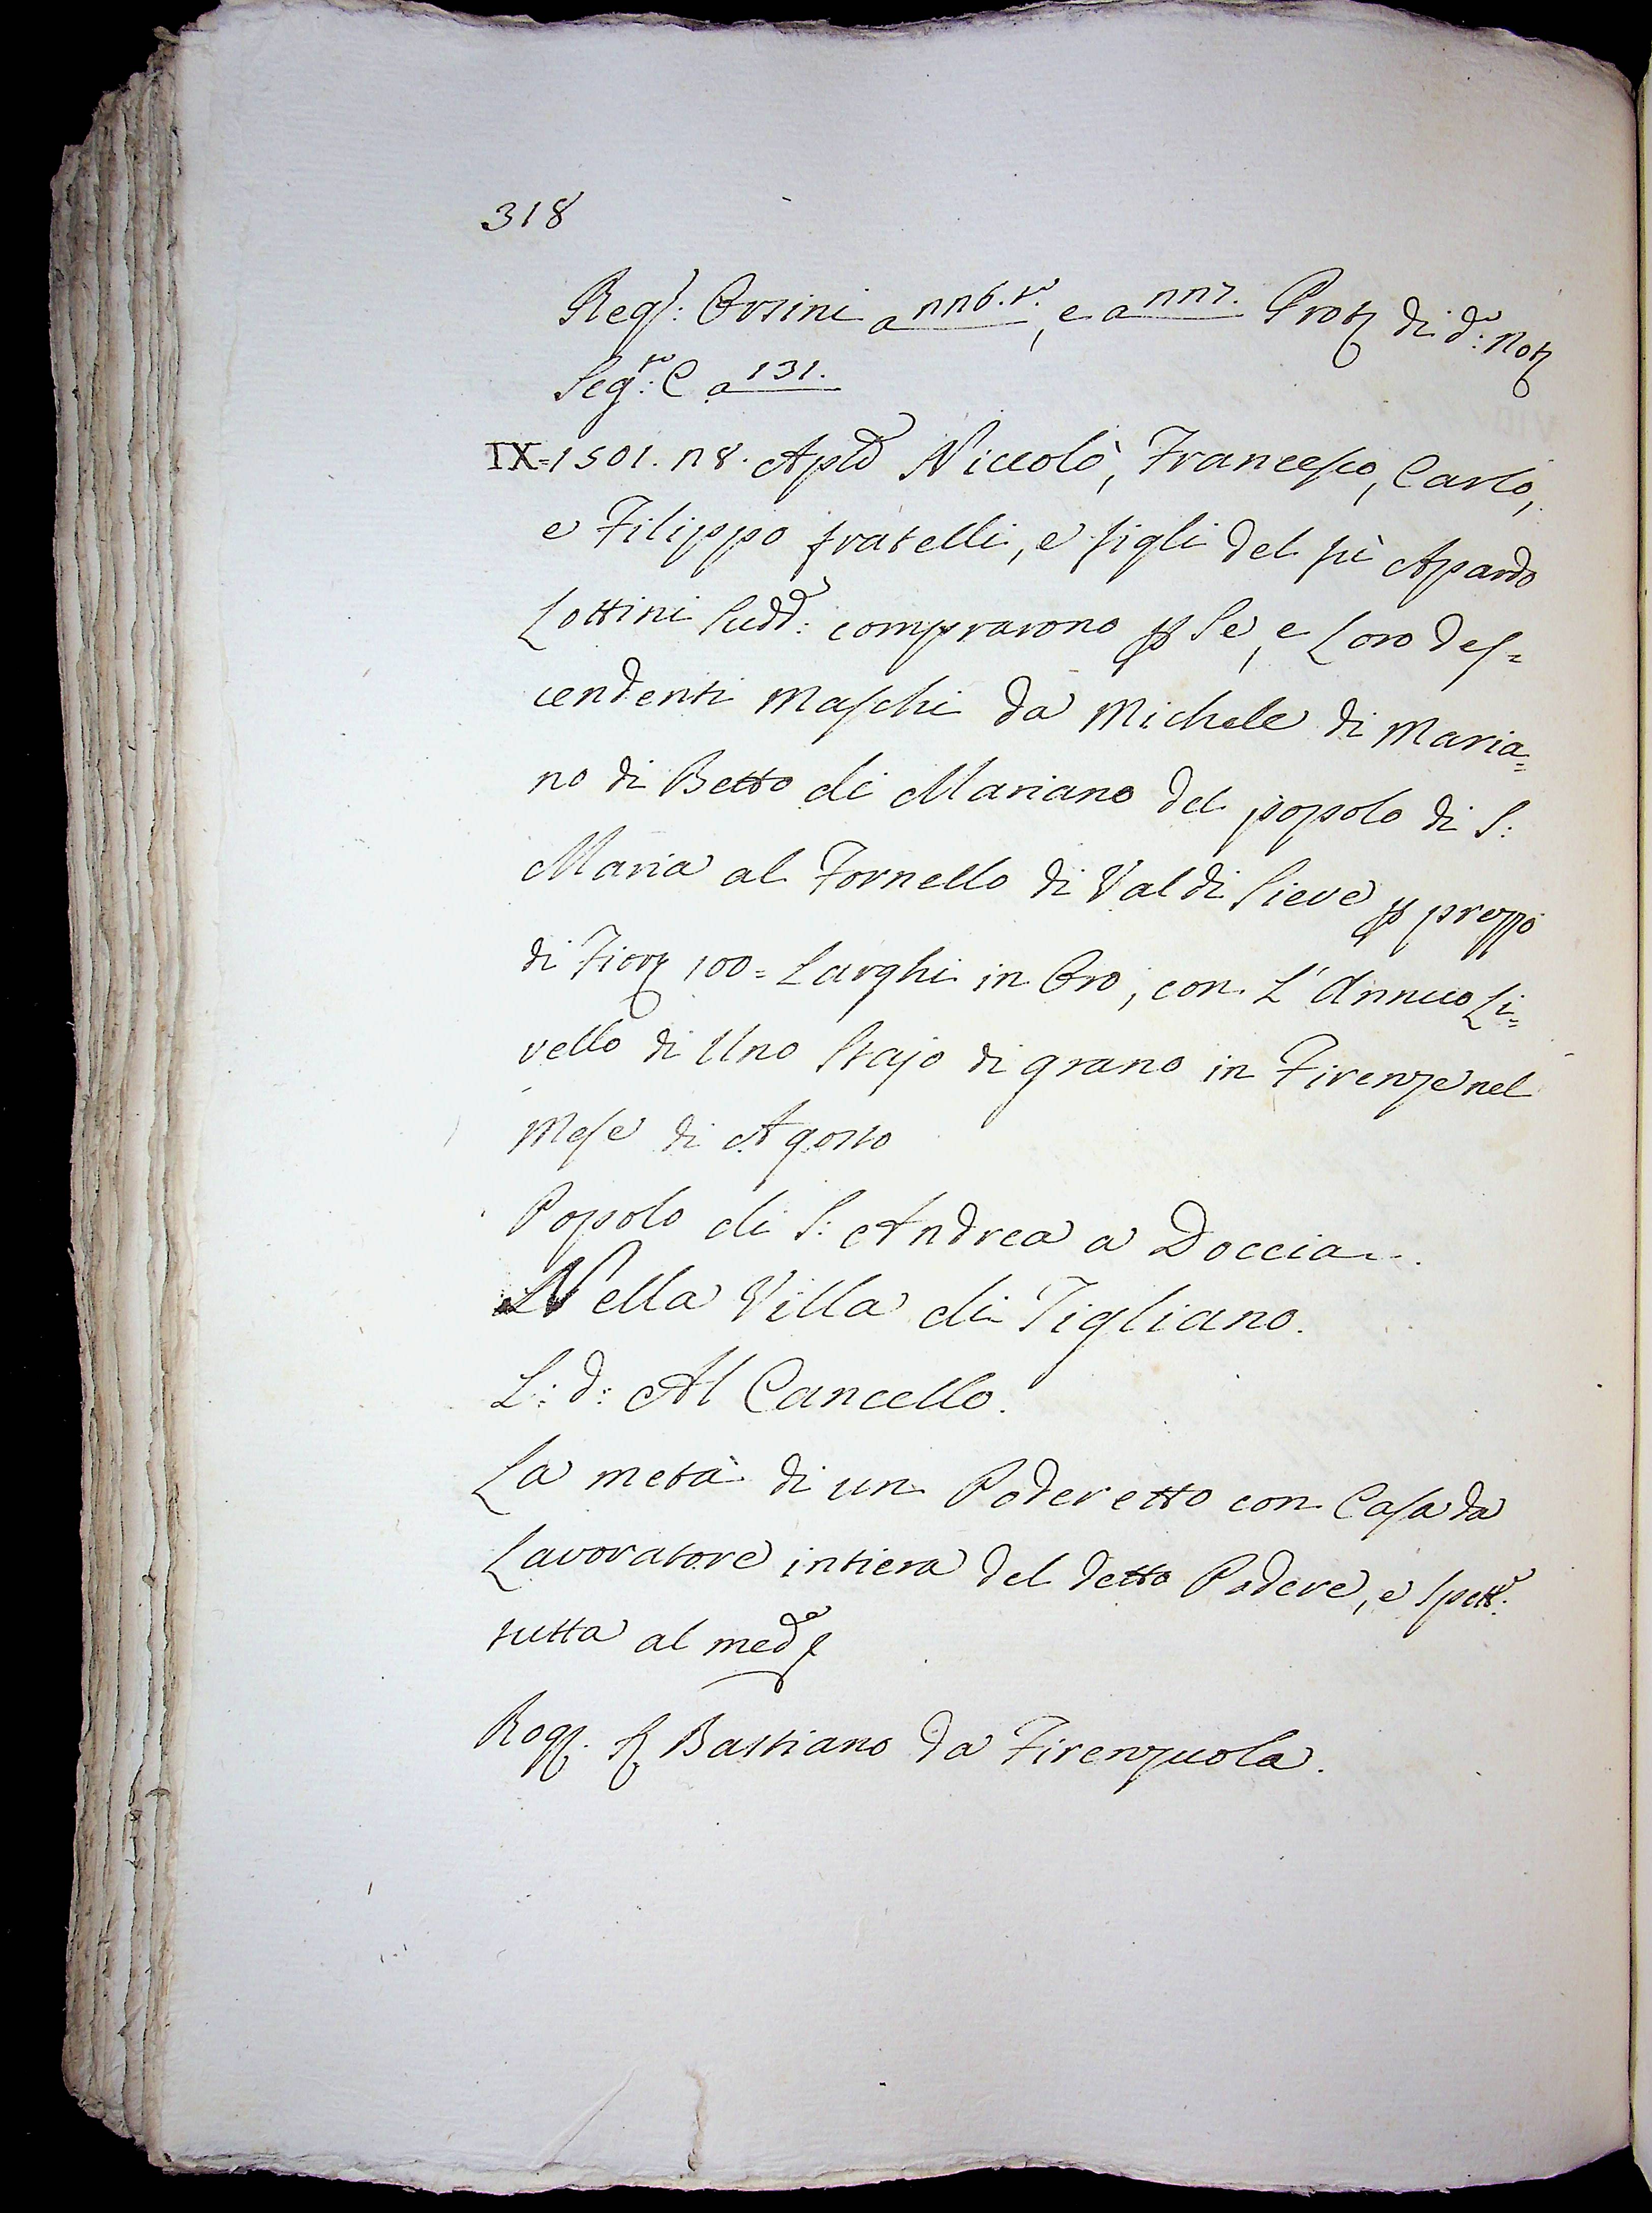 318
Reg: Orsini a 226. vo, e a 227. Prot di do: Not
Sego: C a 131.
IX=1501. 28. Aple Niccolò, Francesco, Carlo,
e Filippo fratelli, e figli del fù Apardo
Lottini Sudd: comprarono p Se, e Loro des=
cendenti Maschi da Michele di Maria=
no di Betto di Mariano del popolo di S:
Maria al Fornello di Val di Sieve p prezzo
di Fior 100= Larghi in Oro, con L'Annuo Li=
vello di Uno Stajo di grano in Firenze nel
Mese di Agosto
Popolo di S: Andrea a Doccia..
Nella Villa di Tigliano.
L: d: Al Cancello.
La metà di un Poderetto con Casa da
Lavoratore intiera del detto Podere, e spette:
tutta al medo
Rog. S Bastiano da Firenzuola.